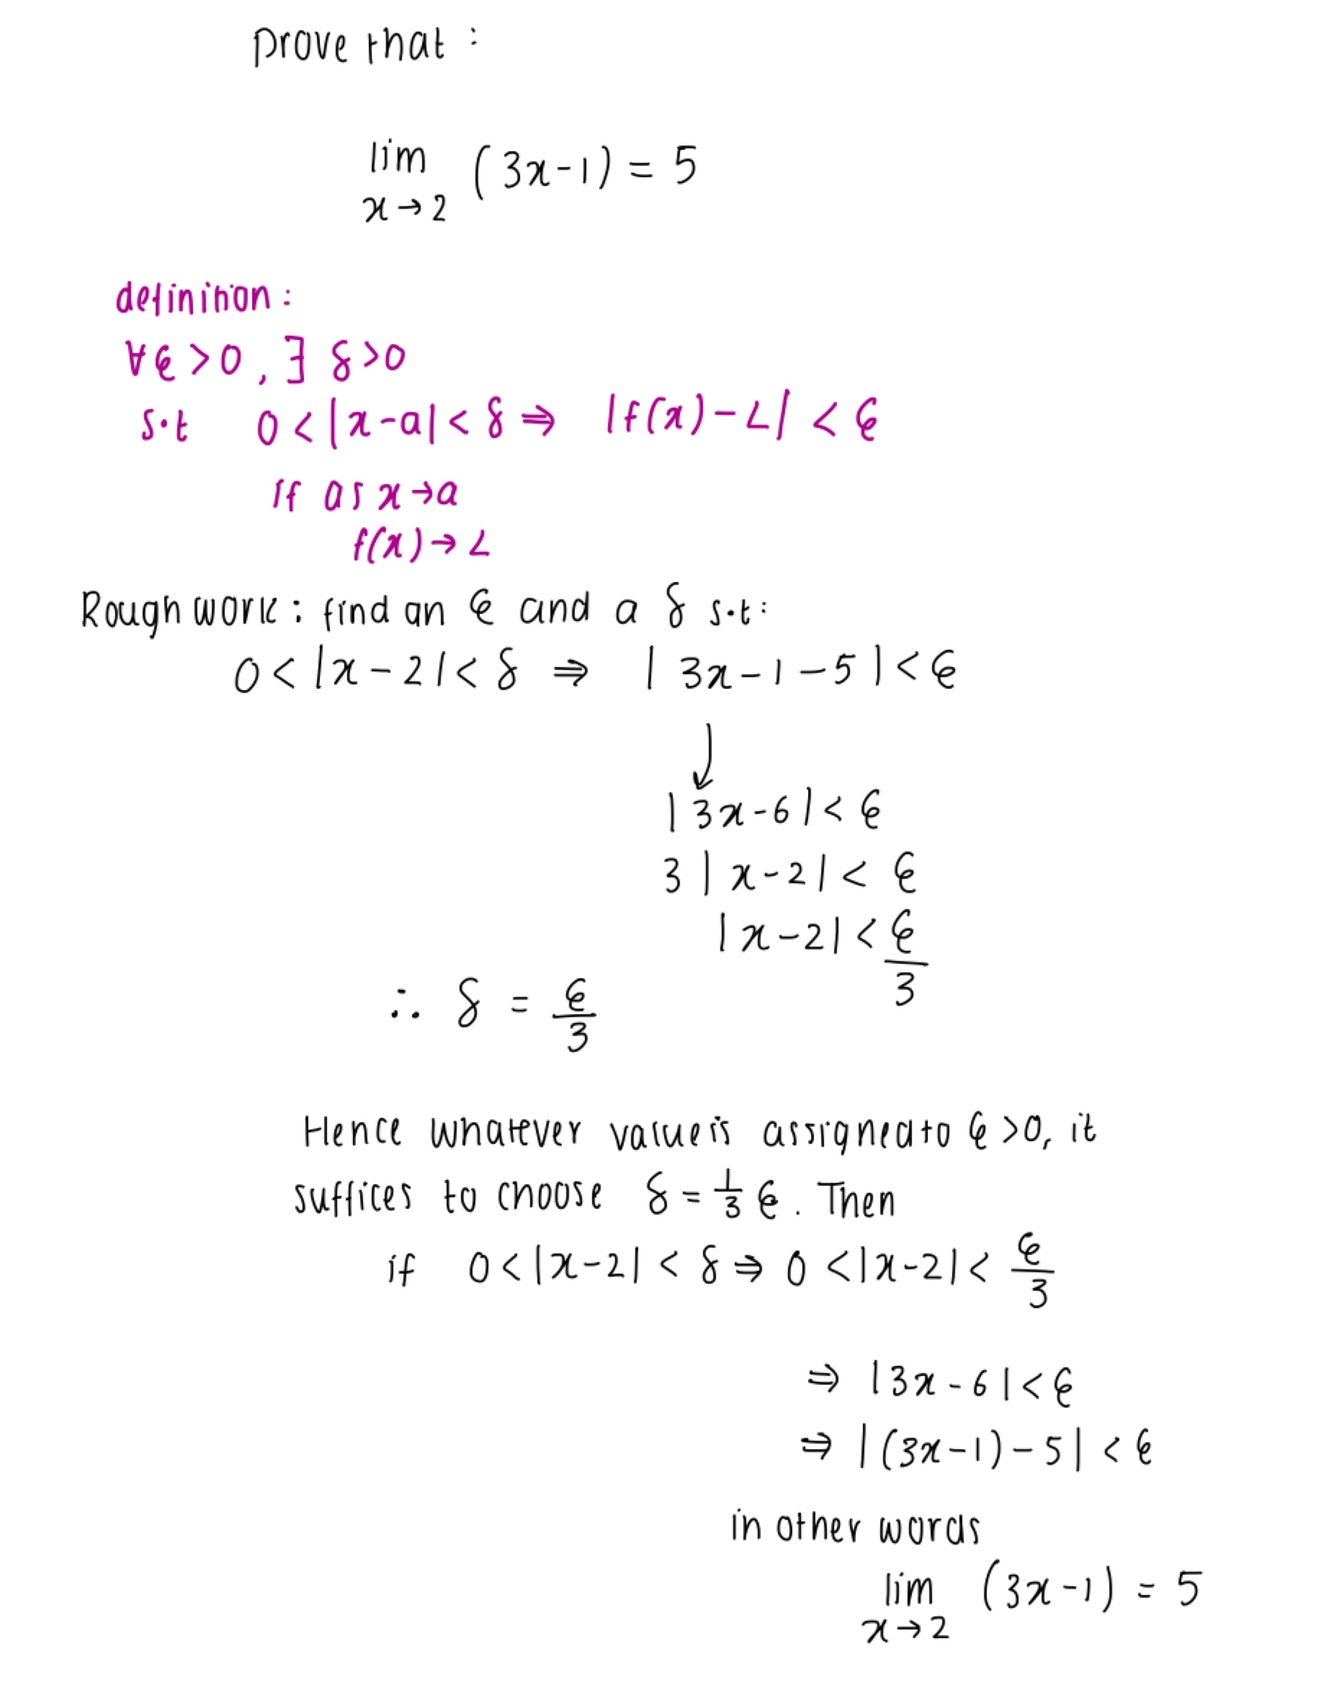 prove that :
lim (3x-1) = 5
x→2
definition :
∀ϵ > 0 , ∃ δ>0
s.t 0 < |x-a| < δ ⇒ |f(x) - L| < ϵ
if as x→a
f(x) → L
Rough work : find an ϵ and a δ s.t :
0 < |x - 2| < δ ⇒ | 3x - 1 - 5 | < ϵ
↓
| 3x - 6 | < ϵ
3 | x - 2 | < ϵ
| x - 2 | < ϵ/3
∴ δ = ϵ/3
Hence whatever value is assigned to ϵ >0, it
suffices to choose δ = 1/3 ϵ . Then
if 0 < |x-2| < δ ⇒ 0 < |x-2| < ϵ/3
⇒ |3x - 6| < ϵ
⇒ |(3x-1) - 5| < ϵ
in other words
lim (3x-1) = 5
x→2